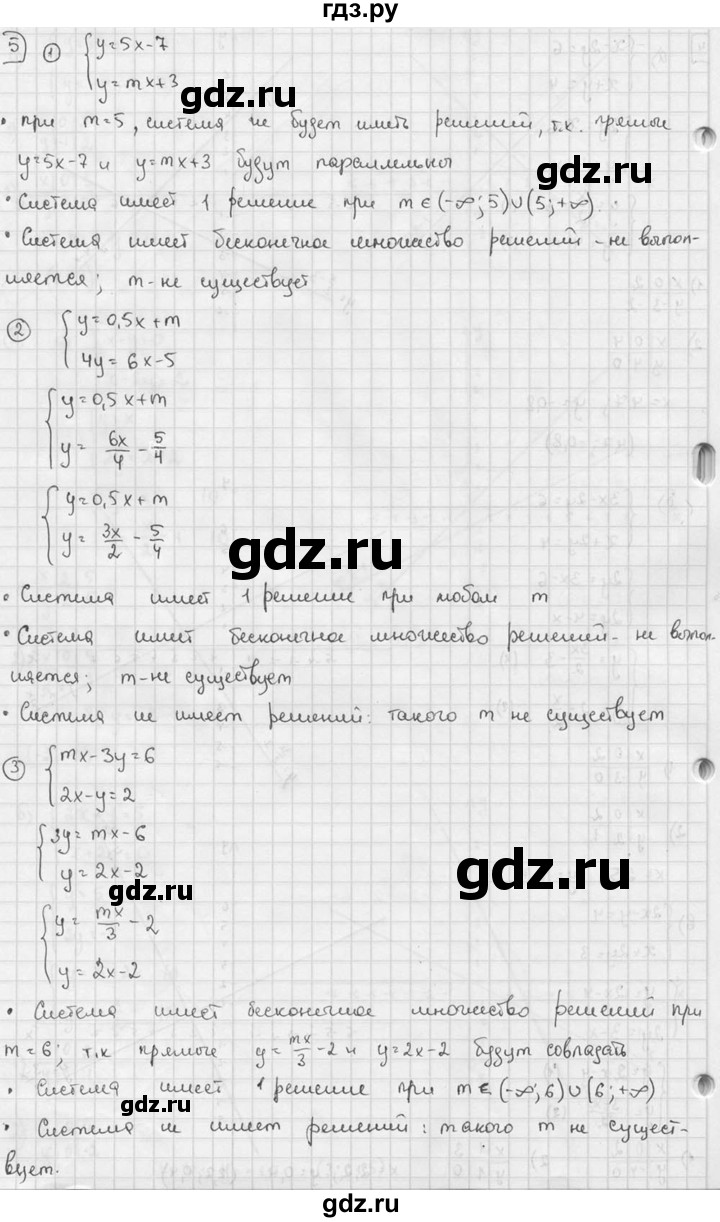 гдз.ру
5 1 { y=5x-7
y=mx+3
• при m=5, система не будет иметь решений, т.к. прямые
y=5x-7 и y=mx+3 будут параллельны
• Система имеет 1 решение при m∈(-∞;5)∪(5;+∞).
• Система имеет бесконечное множество решений - не выпол-
няется; m-не существует
2 { y=0,5x+m
4y=6x-5
{ y=0,5x+m
y= 6x/4 - 5/4
{ y=0,5x+m
y= 3x/2 - 5/4
• Система имеет 1 решение при любом m
• Система имеет бесконечное множество решений - не выпол-
няется; m-не существует
• Система не имеет решений: такого m не существует
3 { mx-3y=6
2x-y=2
{ 3y=mx-6
y=2x-2
{ y= mx/3 -2
y=2x-2
• Система имеет бесконечное множество решений при
m=6; т.к прямые y= mx/3 -2 и y=2x-2 будут совпадать
• Система имеет 1 решение при m∈(-∞;6)∪(6;+∞)
• Система не имеет решений: такого m не сущест-
вует.
gdz.ru
gdz.ru
gdz.ru
gdz.ru
gdz.ru
gdz.ru
gdz.ru